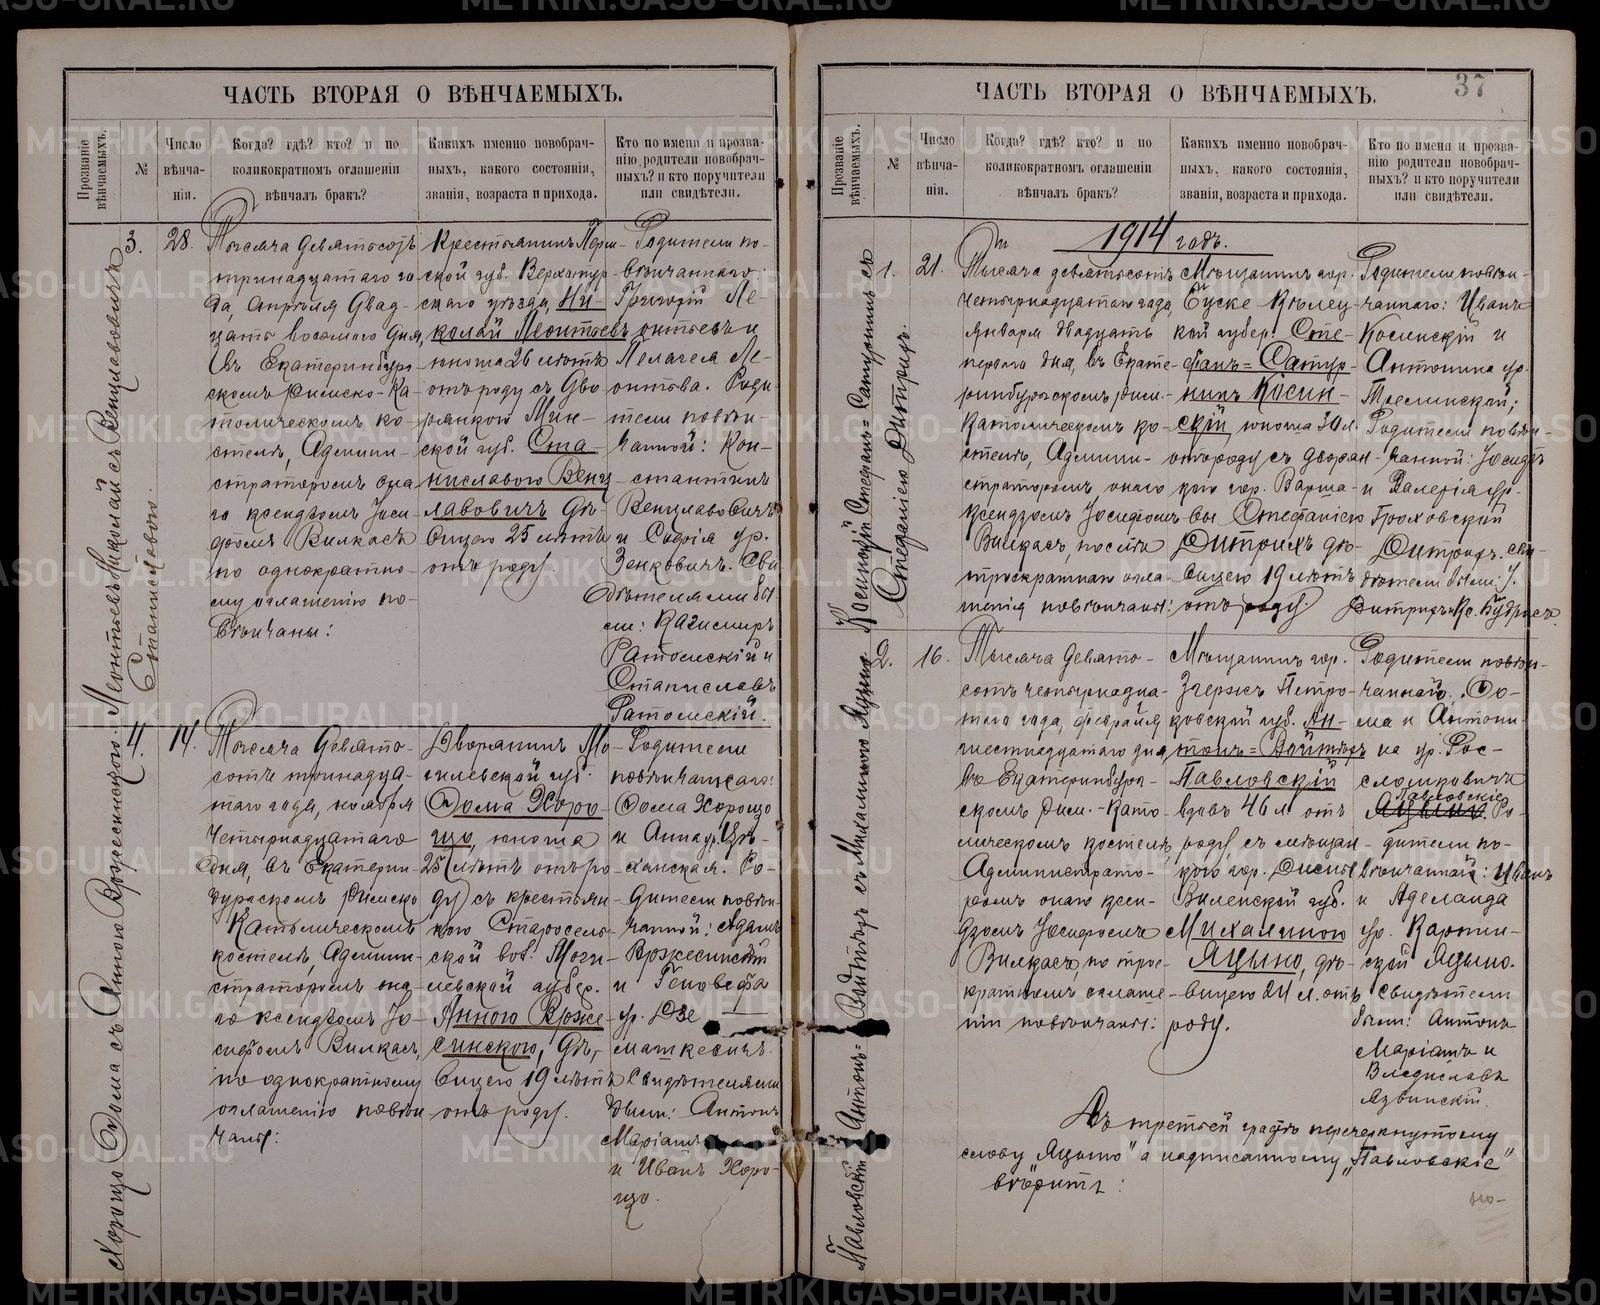 ЧАСТЬ ВТОРАЯ О ВѢНЧАЕМЫХЪ.
Прозваніе вѣнчаемыхъ.
№
Число вѣнча-нія.
Когда? гдѣ? кто? и по
коликократномъ оглашеніи
вѣнчалъ бракъ?
Какихъ именно новобрач-
ныхъ, какого состоянія,
званія, возраста и прихода.
Кто по имени и прозва-
нію родители новобрач-
ныхъ? и кто поручители
или свидѣтели.
Леонтьевъ Николай съ Венцлавовичъ
Станиславою.
3.
28.
Тысяча девятьсотъ
тринадцатаго го-
да, Апрѣля двад-
цать восьмого дня,
въ Екатеринбург-
скомъ Римско-Ка-
толическомъ ко-
стелѣ, Админи-
страторомъ она-
го ксендзомъ Іоси-
фомъ Вилкасъ
по однократно-
му оглашенію по-
вѣнчаны:
Крестьянинъ Перм-
ской губ. Верхотур-
скаго уѣзда, Ни-
колай Леонтьевъ
юноша 26 лѣтъ
отъ роду съ дво-
рянкою Мин-
ской губ. Ста-
ниславою Венц-
лавовичъ дѣ-
вицею 25 лѣтъ
отъ роду.
Родители по-
вѣнчаннаго:
Григорій Ле-
онтьевъ и
Пелагея Ле-
онтьева. Роди-
тели повѣн-
чанной: Кон-
стантинъ
Венцлавовичъ
и Софія ур.
Зенковичъ. Сви-
дѣтелями бы-
ли: Казимиръ
Ратомскій и
Станиславъ
Ратомскій.
Хорощо Ѳома съ Анною Вржесинскою.
4.
14.
Тысяча девято-
сотъ тринадца-
таго года, ноября
четырнадцатаго
дня, въ Екатерин-
бургскомъ Римско
Католическомъ
костелѣ, Админи-
страторомъ она-
го ксендзомъ Іо-
сифомъ Вилкасъ,
по однократному
оглашенію повѣн-
чаны:
Дворянинъ Мо-
гилевской губ.
Ѳома Хоро-
що, юноша
25 лѣтъ отъ ро-
ду съ крестьян-
кою Старосель-
ской вол. Моги-
левской губер.
Анною Врже-
синскою, дѣ-
вицею 19 лѣтъ
отъ роду.
Родители
повѣнчаннаго:
Ѳома Хорощо
и Анна ур. Цѣ-
ханская. Ро-
дители повѣн-
чанной: Адамъ
Вржесинскій
и Геновефа
ур. Дзе
маткевичъ.
Свидѣтелями
были: Антонъ
Маріанъ
и Иванъ Хоро-
що.
37
ЧАСТЬ ВТОРАЯ О ВѢНЧАЕМЫХЪ.
Прозваніе вѣнчаемыхъ.
№
Число вѣнча-нія.
Когда? гдѣ? кто? и по
коликократномъ оглашеніи
вѣнчалъ бракъ?
Какихъ именно новобрач-
ныхъ, какого состоянія,
званія, возраста и прихода.
Кто по имени и прозва-
нію родители новобрач-
ныхъ? и кто поручители
или свидѣтели.
1914 годъ.
Косинскій Стефанъ=Сатурнинъ съ
Стефаніею Дитрихъ.
1.
21.
Тысяча девятьсотъ
четырнадцатаго года,
Января двадцать
перваго дня, въ Екате-
ринбургскомъ рим.-
Католическомъ ко-
стелѣ, Админи-
страторомъ онаго
ксендзомъ Іосифомъ
Вилкасъ, послѣ
троекратнаго огла-
шенія повѣнчаны:
Мѣщанинъ гор.
Буске Кѣлец-
кой губер. Сте-
фанъ=Сатур-
нинъ Косин-
скій юноша 30 л.
отъ роду съ дворян-
кою гор. Варша-
вы Стефаніею
Дитрихъ дѣ-
вицею 19 лѣтъ
отъ роду.
Родители повѣн-
чаннаго: Иванъ
Косинскій и
Антонина ур.
Треспинской;
Родители повѣн-
чанной: Іосифъ
и Валерія ур.
Гроховскій
Дитрихъ. Сви-
дѣтели были: І.
Дитрихъ и Кс. Будрисъ.
Павловскій Антонъ=Войтѣхъ съ Михалиною Яцыно.
2.
16.
Тысяча девято-
сотъ четырнадца-
таго года, февраля
шестнадцатаго дня
въ Екатеринбург-
скомъ Рим.-Като-
лическомъ костелѣ,
Администрато-
ромъ онаго ксен-
дзомъ Іосифомъ
Вилкасъ, по трое-
кратномъ оглаше-
ніи повѣнчаны:
Мѣщанинъ гор.
Згержъ Петро-
ковской губ. Ан-
тонъ=Войтѣхъ
Павловскій
вдовъ 46 л. отъ
роду, съ мѣщан-
кою гор. Дисны
Виленской губ.
Михалиною
Яцыно, дѣ-
вицею 24 л. отъ
роду.
Родители повѣн-
чаннаго: Ѳо-
ма и Антони-
на ур. Рос-
сломковичъ
Павловскіе
Яцыно. Ро-
дители по-
вѣнчанной: Иванъ
и Аделаида
ур. Карпин-
ской Яцыно.
Свидѣтели
были: Антонъ
Маріанъ и
Владиславъ
Язвинскій.
Въ третьей графѣ перечеркнутому
слову „Яцыно" а надписанному „Павловскіе"
вѣрить: